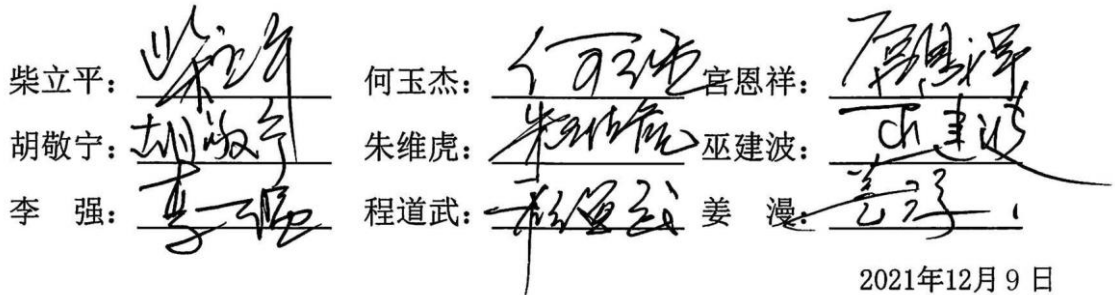 柴立平: 柴立平 何玉杰: 何玉杰 宫恩祥: 宫恩祥
胡敬宁: 胡敬宁 朱维虎: 朱维虎 巫建波: 巫建波
李 强: 李强 程道武: 程道武 姜 漫:
2021年12月9日